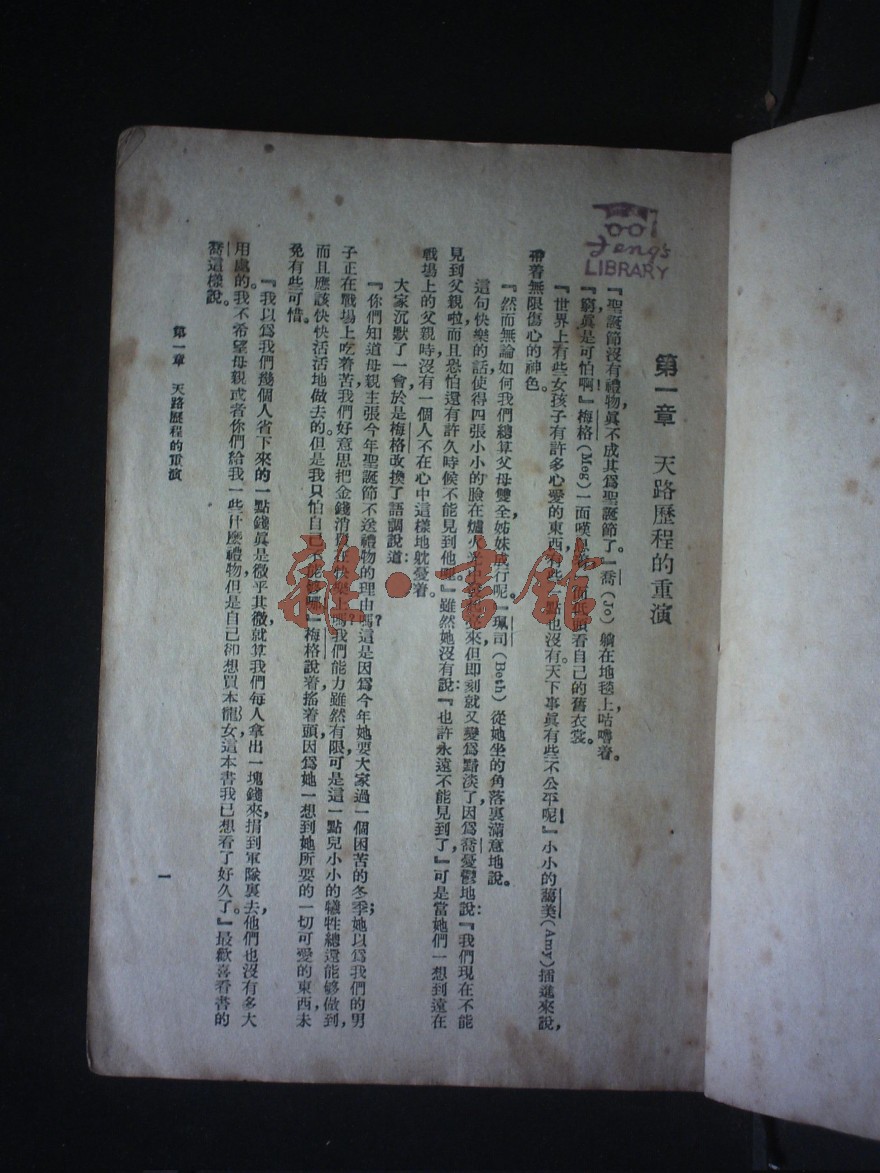 Feng's
LIBRARY
第一章 天路歷程的重演
『聖誕節沒有禮物，眞不成其爲聖誕節了。』喬(Jo)躺在地毯上咕嚕着。
『窮眞是可怕啊！』梅格(Meg)一面嘆 面低頭看自己的舊衣裳。
『世界上有些女孩子有許多心愛的東西，有些一點也沒有。天下事眞有些不公平呢！』小小的藹美(Amy)插進來說，
帶着無限傷心的神色。
『然而無論如何我們總算父母雙全，姊妹成行呢。』珮司(Beth)從她坐的角落裏滿意地說。
這句快樂的話使得四張小小的臉在爐火光 來，但即刻就又變爲黯淡了，因爲喬憂鬱地說：『我們現在不能
見到父親啦，而且恐怕還有許久時候不能見到他哩。』雖然她沒有說：『也許永遠不能見到了，』可是當她們一想到遠在
戰場上的父親時，沒有一個人不在心中這樣地躭憂着。
大家沉默了一會，於是梅格改換了語調說道：
『你們知道母親主張今年聖誕節不送禮物的理由嗎？這是因爲今年她要大家過一個困苦的冬季；她以爲我們的男
子正在戰場上吃着苦，我們好意思把金錢消 在快樂上嗎？我們能力雖然有限，可是這一點兒小小的犧牲總還能够做到，
而且應該快快活活地做去的。但是我只怕自己不能够哪。』梅格說着搖着頭，因爲她一想到她所要的一切可愛的東西，未
免有些可惜。
『我以爲我們幾個人省下來的一點錢眞是微乎其微，就算我們每人拿出一塊錢來，捐到軍隊裏去，他們也沒有多大
用處的。我不希望母親或者你們給我一些什麼禮物，但是自己卻想買本龍女，這本書我已想看了好久了。』最歡喜看書的
喬這樣說。
第一章 天路歷程的重演
一
雜·書館